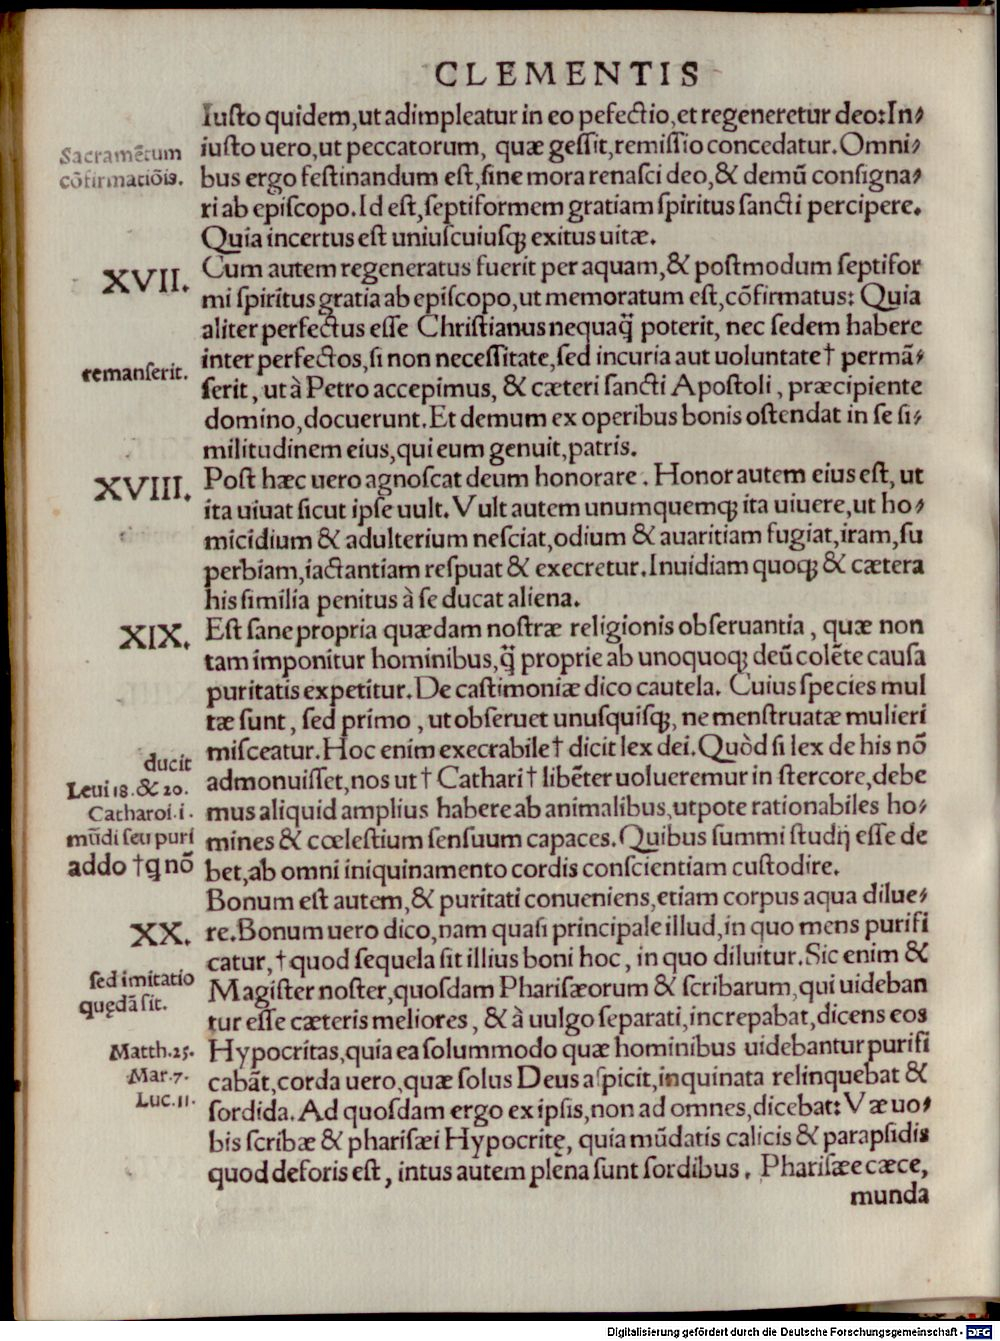 CLEMENTIS
Iusto quidem,ut adimpleatur in eo pefectio,et regeneretur deo:In⸗
iusto uero,ut peccatorum, quæ gessit,remissio concedatur.Omni⸗
Sacramẽtum
cõfirmatiõis.
bus ergo festinandum est,sine mora renasci deo,& demũ consigna⸗
ri ab episcopo.Id est,septiformem gratiam spiritus sancti percipere.
Quia incertus est uniuscuiusqꝫ exitus uitæ.
XVII.
Cum autem regeneratus fuerit per aquam,& postmodum septifor
mi spiritus gratia ab episcopo,ut memoratum est,cõfirmatus: Quia
aliter perfectus esse Christianus nequaq̃ poterit, nec sedem habere
inter perfectos,si non necessitate,sed incuria aut uoluntate† permã⸗
remanserit.
serit, ut à Petro accepimus, & cæteri sancti Apostoli, præcipiente
domino,docuerunt.Et demum ex operibus bonis ostendat in se si⸗
militudinem eius,qui eum genuit,patris.
XVIII.
Post hæc uero agnoscat deum honorare. Honor autem eius est, ut
ita uiuat sicut ipse uult.Vult autem unumquemqꝫ ita uiuere,ut ho⸗
micidium & adulterium nesciat,odium & auaritiam fugiat,iram,su
perbiam,iactantiam respuat & execretur.Inuidiam quoqꝫ & cætera
his similia penitus à se ducat aliena.
XIX.
Est sane propria quædam nostræ religionis obseruantia, quæ non
tam imponitur hominibus,q̃ proprie ab unoquoqꝫ deũ colẽte causa
puritatis expetitur.De castimoniæ dico cautela. Cuius species mul
tæ sunt, sed primo, ut obseruet unusquisqꝫ, ne menstruatæ mulieri
misceatur.Hoc enim execrabile† dicit lex dei.Quòd si lex de his nõ
ducit
Leui 18. & 20.
admonuisset,nos ut† Cathari† libẽter uolueremur in stercore,debe
Catharoi.i.
mũdi seu puri
mus aliquid amplius habere ab animalibus,utpote rationabiles ho⸗
mines & cœlestium sensuum capaces.Quibus summi studij esse de
addo †q nõ
bet,ab omni iniquinamento cordis conscientiam custodire.
XX.
Bonum est autem,& puritati conueniens,etiam corpus aqua dilue⸗
re.Bonum uero dico,nam quasi principale illud,in quo mens purifi
catur,†quod sequela sit illius boni hoc, in quo diluitur.Sic enim &
sed imitatio
quędã sit.
Magister noster,quosdam Pharisæorum & scribarum,qui uideban
tur esse cæteris meliores, & à uulgo separati,increpabat,dicens eos
Matth.25.
Mar.7.
Luc.11.
Hypocritas,quia ea solummodo quæ hominibus uidebantur purifi
cabãt,corda uero,quæ solus Deus aspicit,inquinata relinquebat &
sordida.Ad quosdam ergo ex ipsis,non ad omnes,dicebat:Væ uo⸗
bis scribæ & pharisæi Hypocritę, quia mũdatis calicis & parapsidis
quod deforis est, intus autem plena sunt sordibus. Pharisæe cæce,
munda
Digitalisierung gefördert durch die Deutsche Forschungsgemeinschaft - DFG